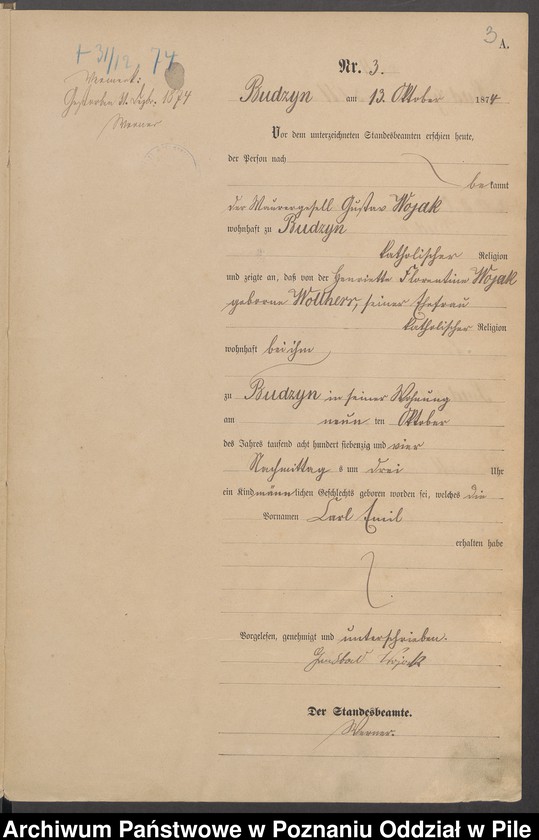 3
A.
+ 31/12. 74
Vermerk:
Gestorben 31. Dezbr. 1874
Werner
Nr. 3.
Budzyn am 13. Oktober 1874
Vor dem unterzeichneten Standesbeamten erschien heute,
der Person nach
bekannt
der Maurergesell Gustav Wojak
wohnhaft zu Budzyn
katholischer Religion
und zeigte an, daß von der Henriette Florentine Wojak
geborne Wolthers, seiner Ehefrau
katholischer Religion
wohnhaft bei ihm
zu Budzyn in seiner Wohnung
am neun ten Oktober
des Jahres tausend acht hundert siebenzig und vier
Nachmittags um drei Uhr
ein Kind männlichen Geschlechts geboren worden sei, welches die
Vornamen Carl Emil
erhalten habe
Vorgelesen, genehmigt und unterschrieben.
Wojack
Der Standesbeamte.
Werner.
Archiwum Państwowe w Poznaniu Oddział w Pile